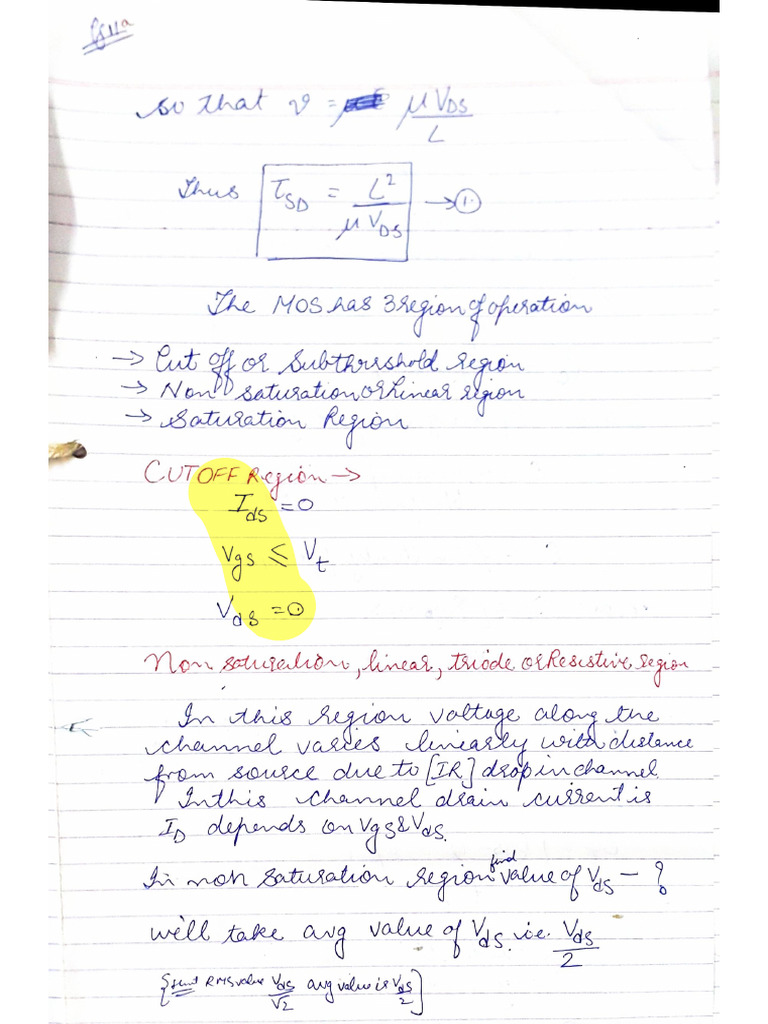 so that v = μ V_DS / L
Thus τ_SD = L² / μ V_DS → ①
The MOS has 3 region of operation
→ Cut off or Subthrshold region
→ Non saturation or Linear region
→ Saturation Region
CUTOFF Region →
I_ds = 0
V_gs ≤ V_t
V_ds = 0
Non saturation, linear, triode or Resistive region
In this region voltage along the
channel varies linearly with distance
from source due to [IR] drop in channel.
In this channel drain current is
I_D depends on Vgs & Vds.
In non saturation region find value of V_ds – ?
will take avg value of V_ds. i.e. V_ds / 2
RMS value V_ds / √2 avg value is V_ds / 2